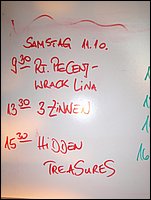 SAMSTAG 11.10.
9³⁰ RT. PECENT-
WRACK LINA
13³⁰ 3 ZINNEN
15³⁰ HiDDEN
TREASURES
16